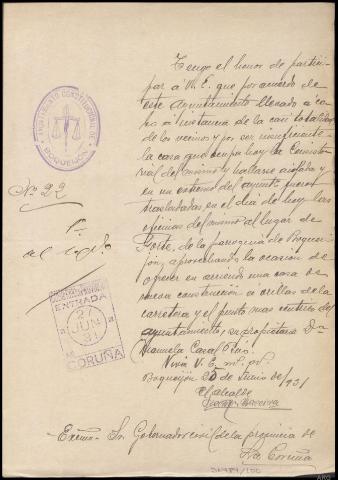 AYUNTAMIENTO CONSTITUCIONAL DE
BOQUEIJON
Tengo el honor de partici-
par á V. E. que por acuerdo de
este Ayuntamiento llevado á ca-
bo á instancia de la casi totalidad
de los vecinos y por ser insuficiente
la casa que ocupa hoy la Consisto-
rial del mismo y hallarse aislada y
en un extremo del ayunto. fueron
trasladadas en el dia de hoy las
oficinas del mismo al lugar de
Forte, de la parroquia de Boquei-
jón, aprovechando la ocasion de
ofrecer en arriendo una casa de
nueva construcción á orillas de la
carretera y el punto mas centrico del
ayuntamiento, su propietaria Dª
Manuela Casal Rios.
Viva V. E. m. a.
Boqueijón 25 de Junio de 1931
El alcalde
Nº 22
1º
al expte.
ENTRADA
27
JUN
31
CORUÑA
Excmo. Sr. Gobernador civil de la provincia de
La Coruña